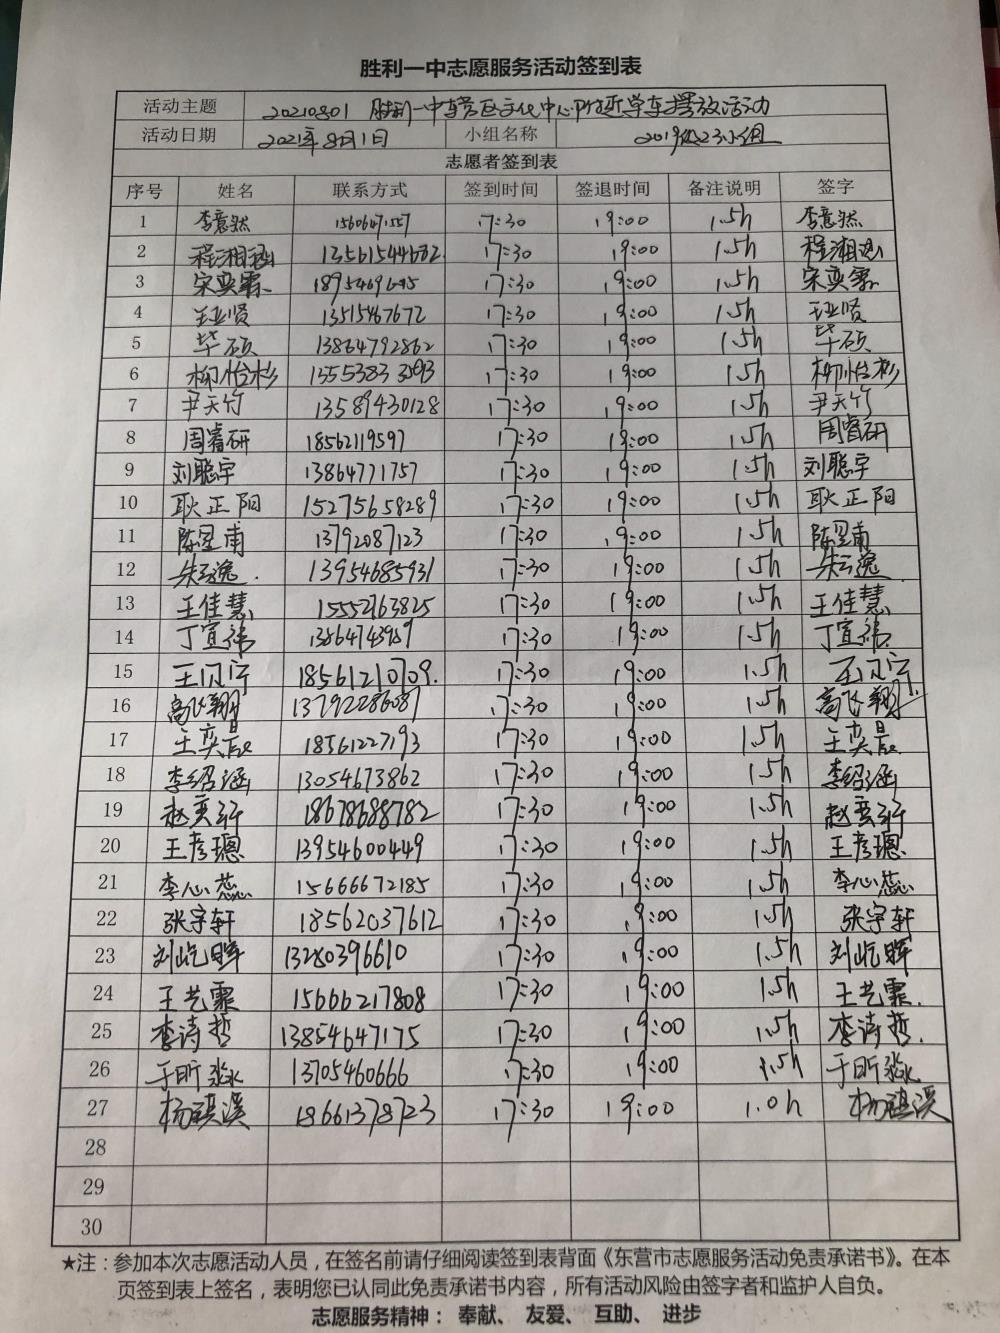 胜利一中志愿服务活动签到表
活动主题 20210801 胜利一中东营区文化中心附近单车摆放活动
活动日期 2021年8月1日 小组名称 2019级23小组
志愿者签到表
序号 姓名 联系方式 签到时间 签退时间 备注说明 签字
1 李意然 17:30 19:00 1.5h 李意然
2 程湘涵 17:30 19:00 1.5h 程湘涵
3 宋奕霖 17:30 19:00 1.5h 宋奕霖
4 王业贤 13515467672 17:30 19:00 1.5h 王业贤
5 毕硕 13864792862 17:30 19:00 1.5h 毕硕
6 柳怡杉 17:30 19:00 1.5h 柳怡杉
7 尹天竹 13589430128 17:30 19:00 1.5h 尹天竹
8 周睿研 18562119597 17:30 19:00 1.5h 周睿研
9 刘聪宇 13864771757 17:30 19:00 1.5h 刘聪宇
10 耿正阳 15275658289 17:30 19:00 1.5h 耿正阳
11 陈昱甫 13792087123 17:30 19:00 1.5h 陈昱甫
12 朱云逸 13954685931 17:30 19:00 1.5h 朱云逸
13 王佳慧 15552763825 17:30 19:00 1.5h 王佳慧
14 丁宣祎 17:30 19:00 1.5h 丁宣祎
15 18561210709 17:30 19:00 1.5h
16 高飞翔 13792286087 17:30 19:00 1.5h 高飞翔
17 王奕晨 18561227193 17:30 19:00 1.5h 王奕晨
18 李绍涵 13054673862 17:30 19:00 1.5h 李绍涵
19 赵奕 18678688782 17:30 19:00 1.5h 赵奕
20 王彦璁 13954600449 17:30 19:00 1.5h 王彦璁
21 李心蕊 15666672185 17:30 19:00 1.5h 李心蕊
22 张宇轩 18562037612 17:30 19:00 1.5h 张宇轩
23 刘屹晖 13280396610 17:30 19:00 1.5h 刘屹晖
24 王艺霏 15666217808 17:30 19:00 1.5h 王艺霏
25 李涛哲 13854647175 17:30 19:00 1.5h 李涛哲
26 于昕淼 13705460666 17:30 19:00 1.5h 于昕淼
27 杨祺溪 18661378723 17:30 19:00 1.0h 杨祺溪
28
29
30
★注：参加本次志愿活动人员，在签名前请仔细阅读签到表背面《东营市志愿服务活动免责承诺书》。在本
页签到表上签名，表明您已认同此免责承诺书内容，所有活动风险由签字者和监护人自负。
志愿服务精神： 奉献、 友爱、 互助、 进步